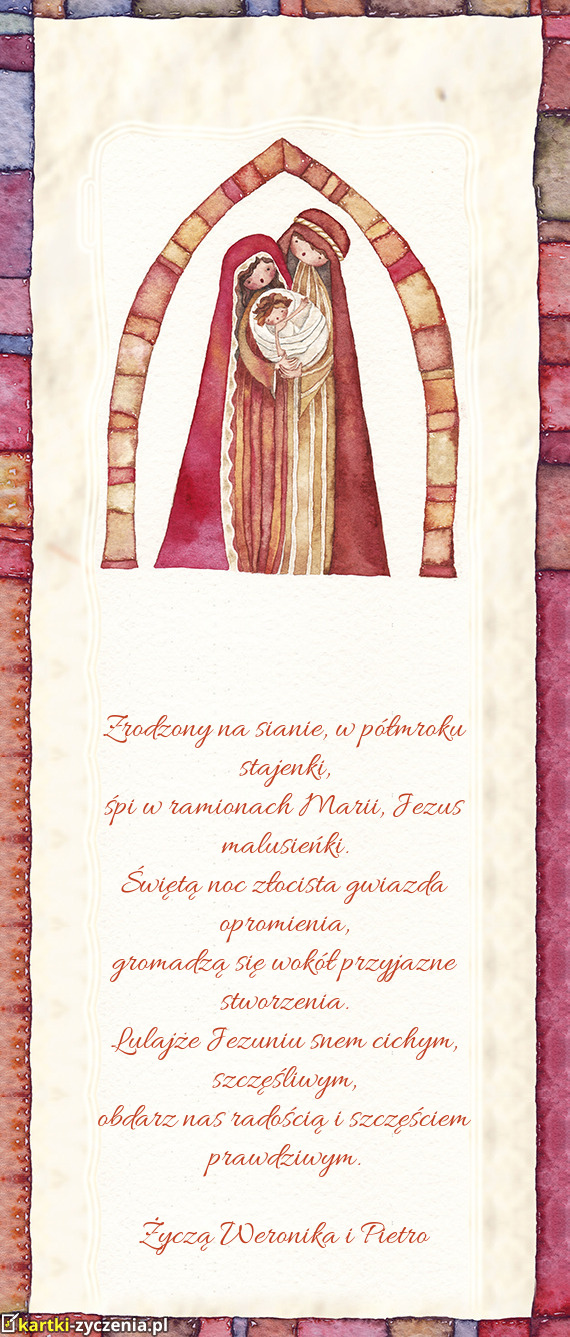 Zrodzony na sianie, w półmroku
stajenki,
śpi w ramionach Marii, Jezus
malusieńki.
Świętą noc złocista gwiazda
opromienia,
gromadzą się wokół przyjazne
stworzenia.
Lulajże Jezuniu snem cichym,
szczęśliwym,
obdarz nas radością i szczęściem
prawdziwym.
Życzą Weronika i Pietro
kartki-zyczenia.pl